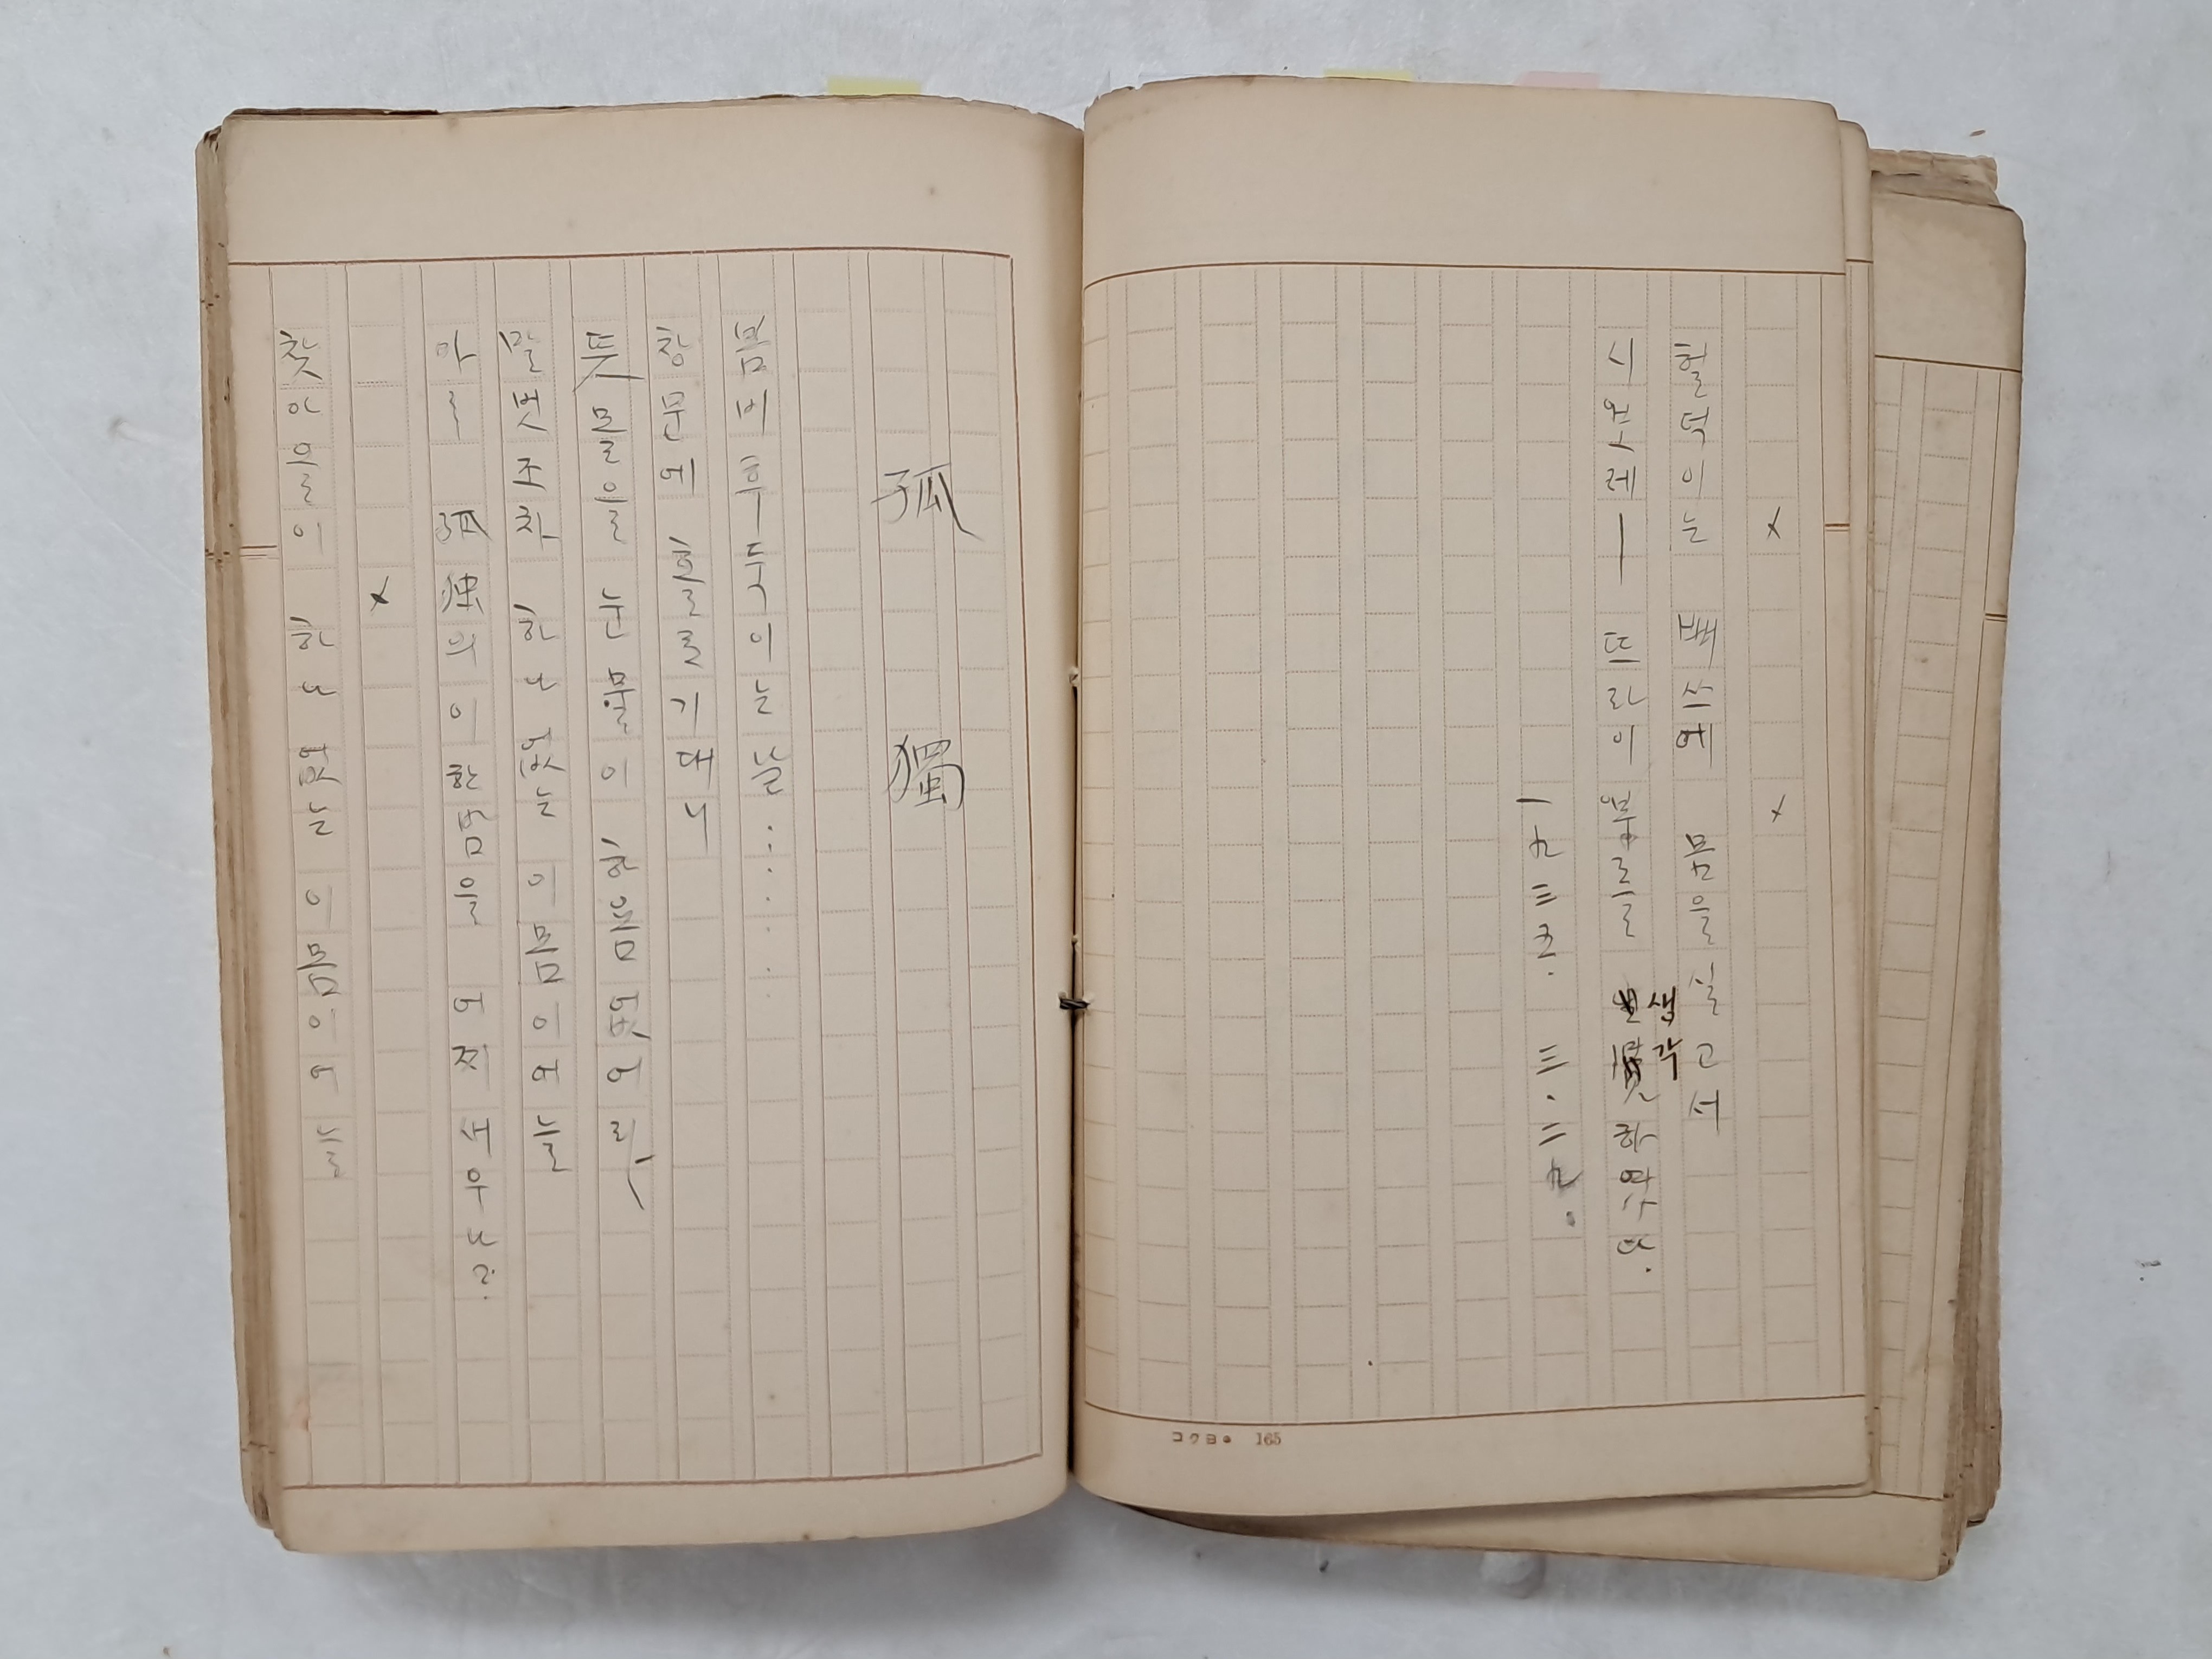 × ×
헐덕이는 뻐쓰에 몸을 실고서
시골레ー 뜨라이부를 생각하였다.
一九三天. 三.二九.
コクヨ 165
孤獨
봄비 후두이는 날······
창문에 흘을 기대니
뜨물을 눈물이 하음없어리
말벗조차 하나 없는 이 몸이어늘
아ー 孤独의 이 한 밤을 어찌 새우나?
×
찾아올 이 하나 없는 이 몸이어늘